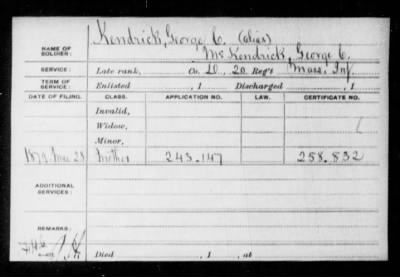 Kendrick, George C. (alias)
NAME OF SOLDIER: McKendrick, George C.
SERVICE: Late rank, Co. D, 20 Reg't Mass. Inf.
TERM OF SERVICE: Enlisted , 1 Discharged , 1
DATE OF FILING. CLASS. APPLICATION NO. LAW. CERTIFICATE NO.
Invalid,
Widow,
Minor,
1879, Mother 243.147 258.832
ADDITIONAL SERVICES:
REMARKS:
Died , 1 , at